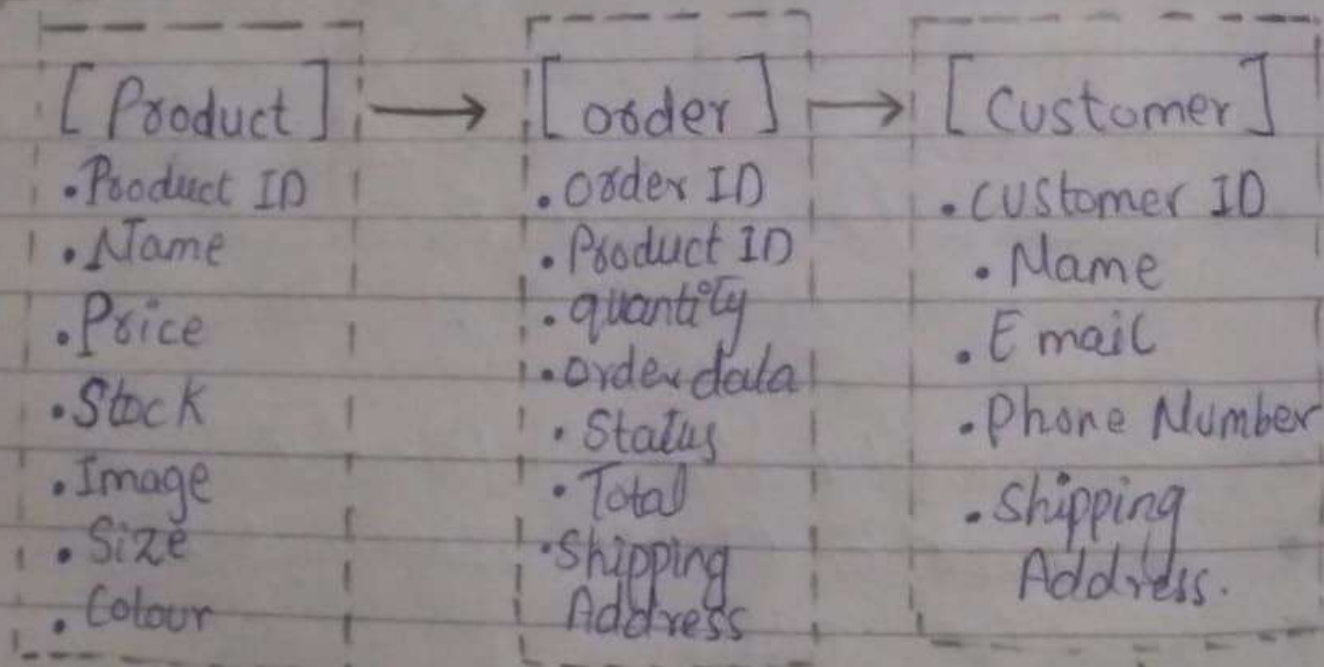 [Product] → [order] → [Customer]
• Product ID
• Name
• Price
• Stock
• Image
• Size
• Colour
• order ID
• Product ID
• quantity
• order data
• Status
• Total
• Shipping
Address
• Customer ID
• Name
• Email
• Phone Number
• Shipping
Address.